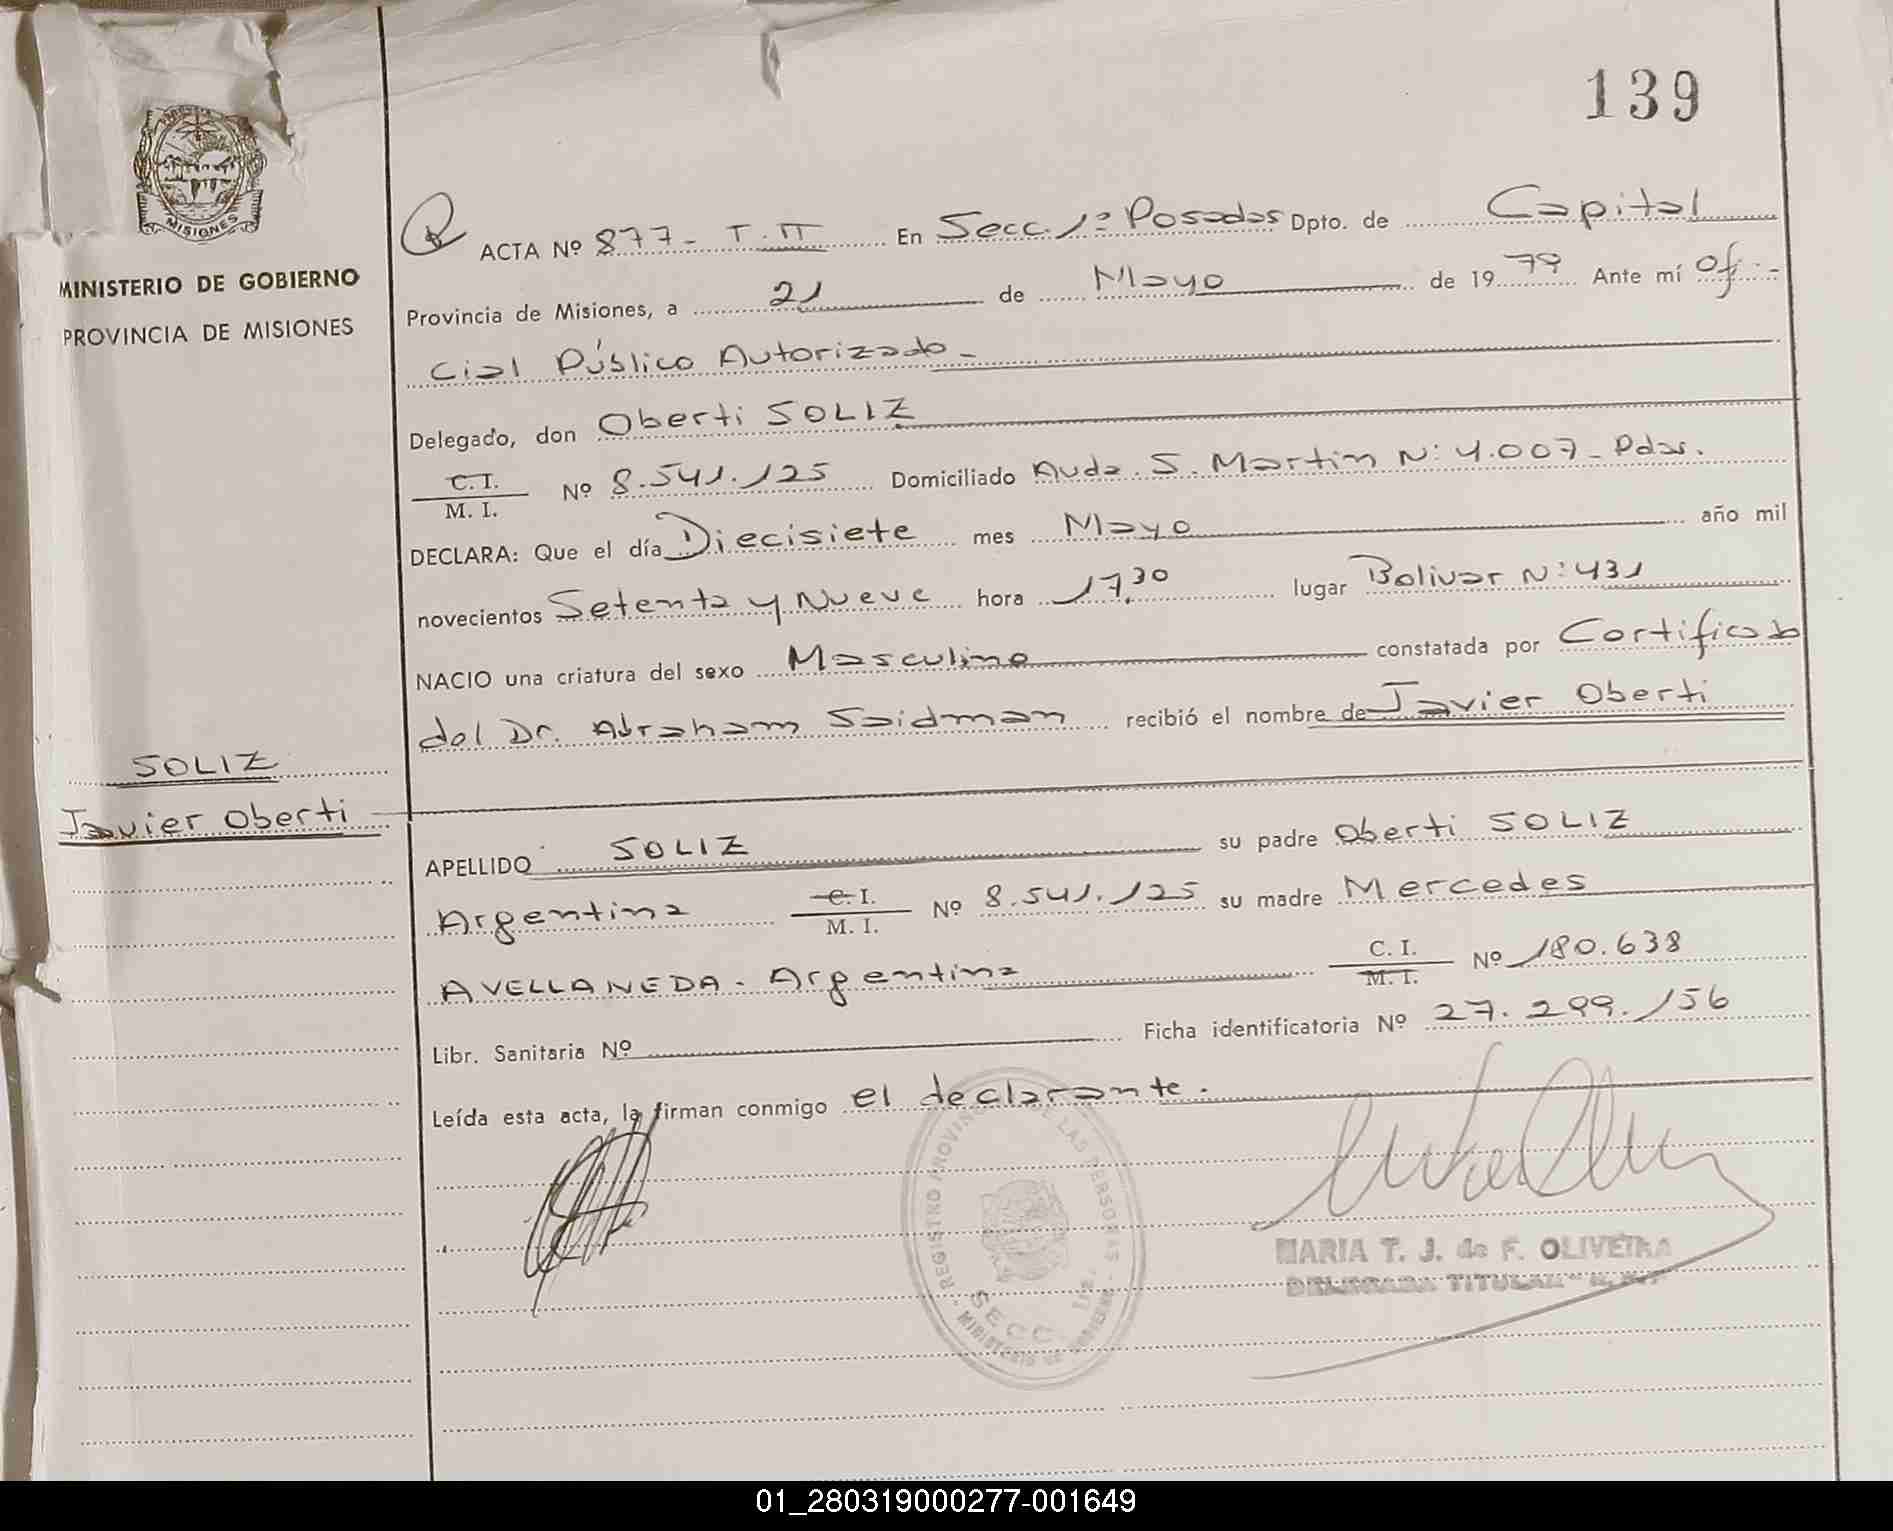 139
MISIONES
MINISTERIO DE GOBIERNO
PROVINCIA DE MISIONES
SOLIZ
Javier Oberti
ACTA Nº 877- T. II En Secc. 1ª Posadas Dpto. de Capital
Provincia de Misiones, a 21 de Mayo de 1979 Ante mí Ofi-
cial Público Autorizado-
Delegado, don Oberti SOLIZ
C.I. / M. I. Nº 8.541.125 Domiciliado Avda. S. Martin N: 4.007- Pdas.
DECLARA: Que el día Diecisiete mes Mayo año mil
novecientos Setenta y Nueve hora 17,30 lugar Bolivar N: 431
NACIO una criatura del sexo Masculino constatada por Certificado
del Dr. Abraham Saidman recibió el nombre de Javier Oberti
APELLIDO SOLIZ su padre Oberti SOLIZ
Argentina C. I. / M. I. Nº 8.541.125 su madre Mercedes
AVELLANEDA. Argentina C. I. / M. I. Nº 180.638
Libr. Sanitaria Nº Ficha identificatoria Nº 27.299.156
Leída esta acta, la firman conmigo el declarante.
REGISTRO PROVINCIAL DE LAS PERSONAS
SECC. 1ra.
MINISTERIO DE GOBIERNO
MARIA T. J. de F. OLIVEIRA
DELEGADA TITULAR
01_280319000277-001649